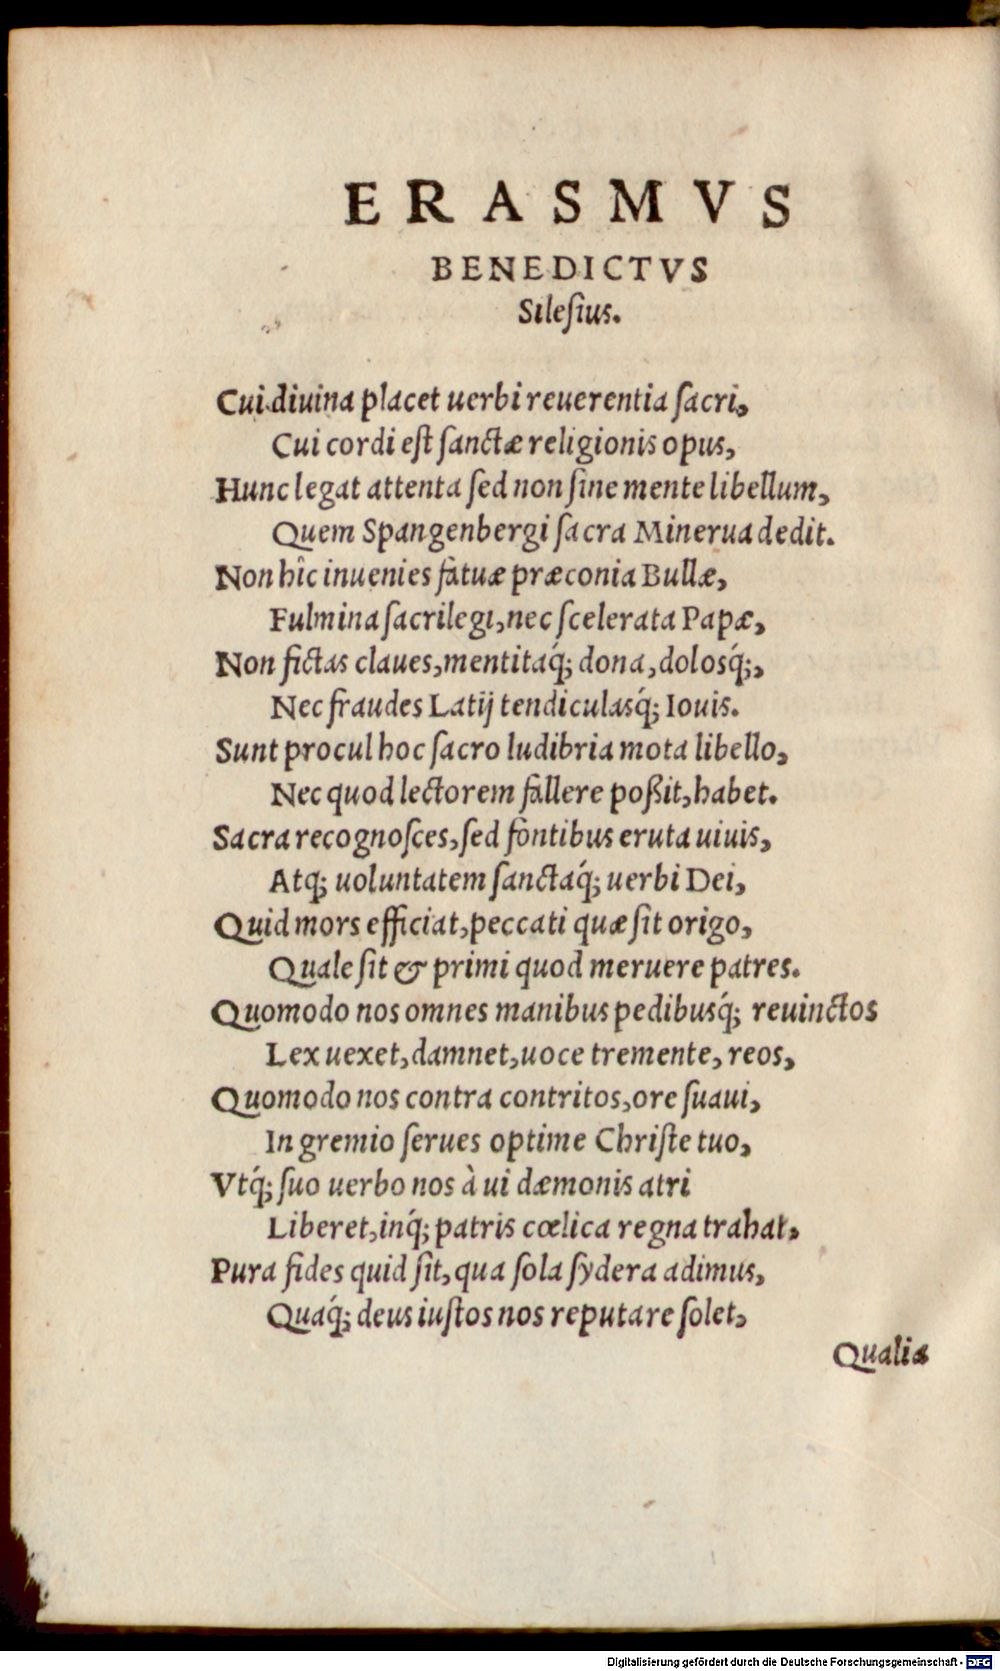 ERASMVS
BENEDICTVS
Sileſius.
Cui diuina placet uerbi reuerentia ſacri,
Cui cordi eſt ſanctæ religionis opus,
Hunc legat attenta ſed non ſine mente libellum,
Quem Spangenbergi ſacra Minerua dedit.
Non hîc inuenies fatuæ præconia Bullæ,
Fulmina ſacrilegi, nec ſcelerata Papæ,
Non fictas claues, mentitaq́; dona, dolosq́;,
Nec fraudes Latij tendiculasq́; Iouis.
Sunt procul hoc ſacro ludibria mota libello,
Nec quod lectorem fallere poßit, habet.
Sacra recognoſces, ſed fontibus eruta uiuis,
Atq; uoluntatem ſanctaq́; uerbi Dei,
Quid mors efficiat, peccati quæ ſit origo,
Quale ſit & primi quod meruere patres.
Quomodo nos omnes manibus pedibusq́; reuinctos
Lex uexet, damnet, uoce tremente, reos,
Quomodo nos contra contritos, ore ſuaui,
In gremio ſerues optime Chriſte tuo,
Vtq́; ſuo uerbo nos à ui dæmonis atri
Liberet, inq́; patris cœlica regna trahat,
Pura fides quid ſit, qua ſola ſydera adimus,
Quaq́; deus iuſtos nos reputare ſolet,
Qualia
Digitalisierung gefördert durch die Deutsche Forschungsgemeinschaft - DFG